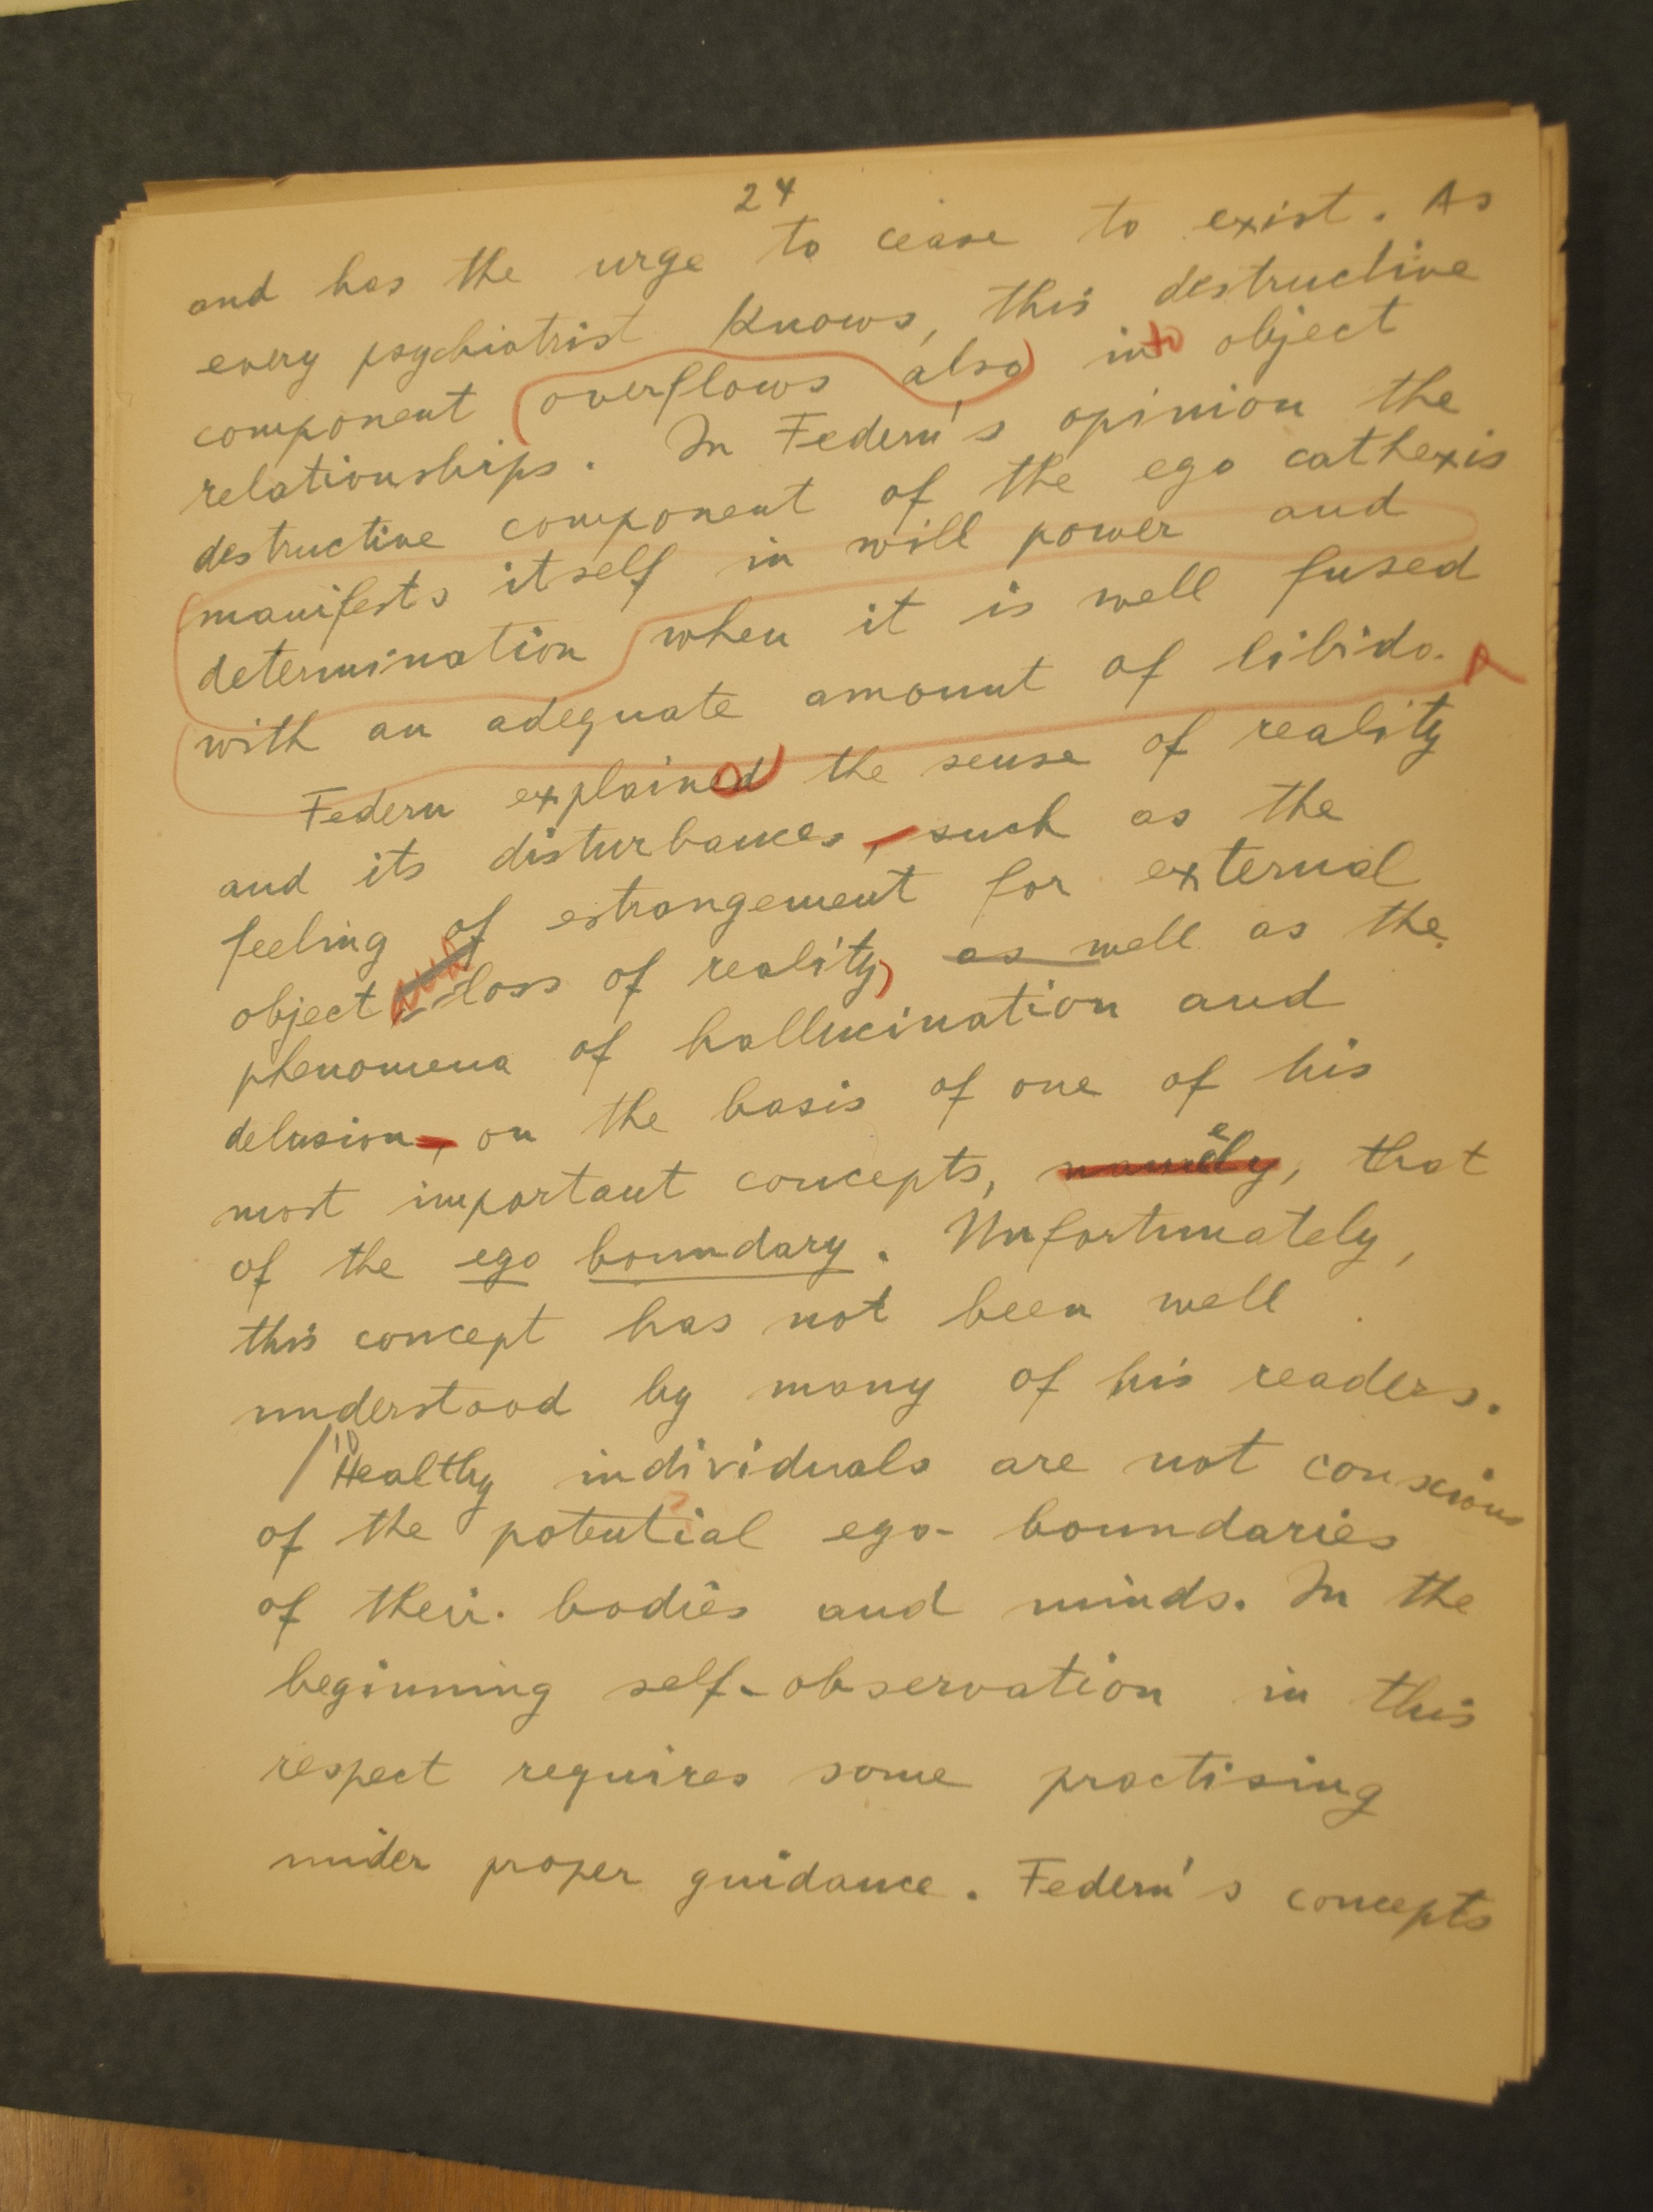 24
and has the urge to cease to exist. As
every psychiatrist knows, this destructive
component overflows also into object
relationships. In Federn's opinion the
destructive component of the ego cathexis
manifests itself in will power and
determination when it is well fused
with an adequate amount of libido.
Federn explained the sense of reality
and its disturbances, such as the
feeling of estrangement for external
object and loss of reality, as well as the
phenomena of hallucination and
delusion, on the basis of one of his
most important concepts, namely, that
of the ego boundary. Unfortunately,
this concept has not been well
understood by many of his readers.
Healthy individuals are not conscious
of the potential ego-boundaries
of their bodies and minds. In the
beginning self-observation in this
respect requires some practising
under proper guidance. Federn's concepts